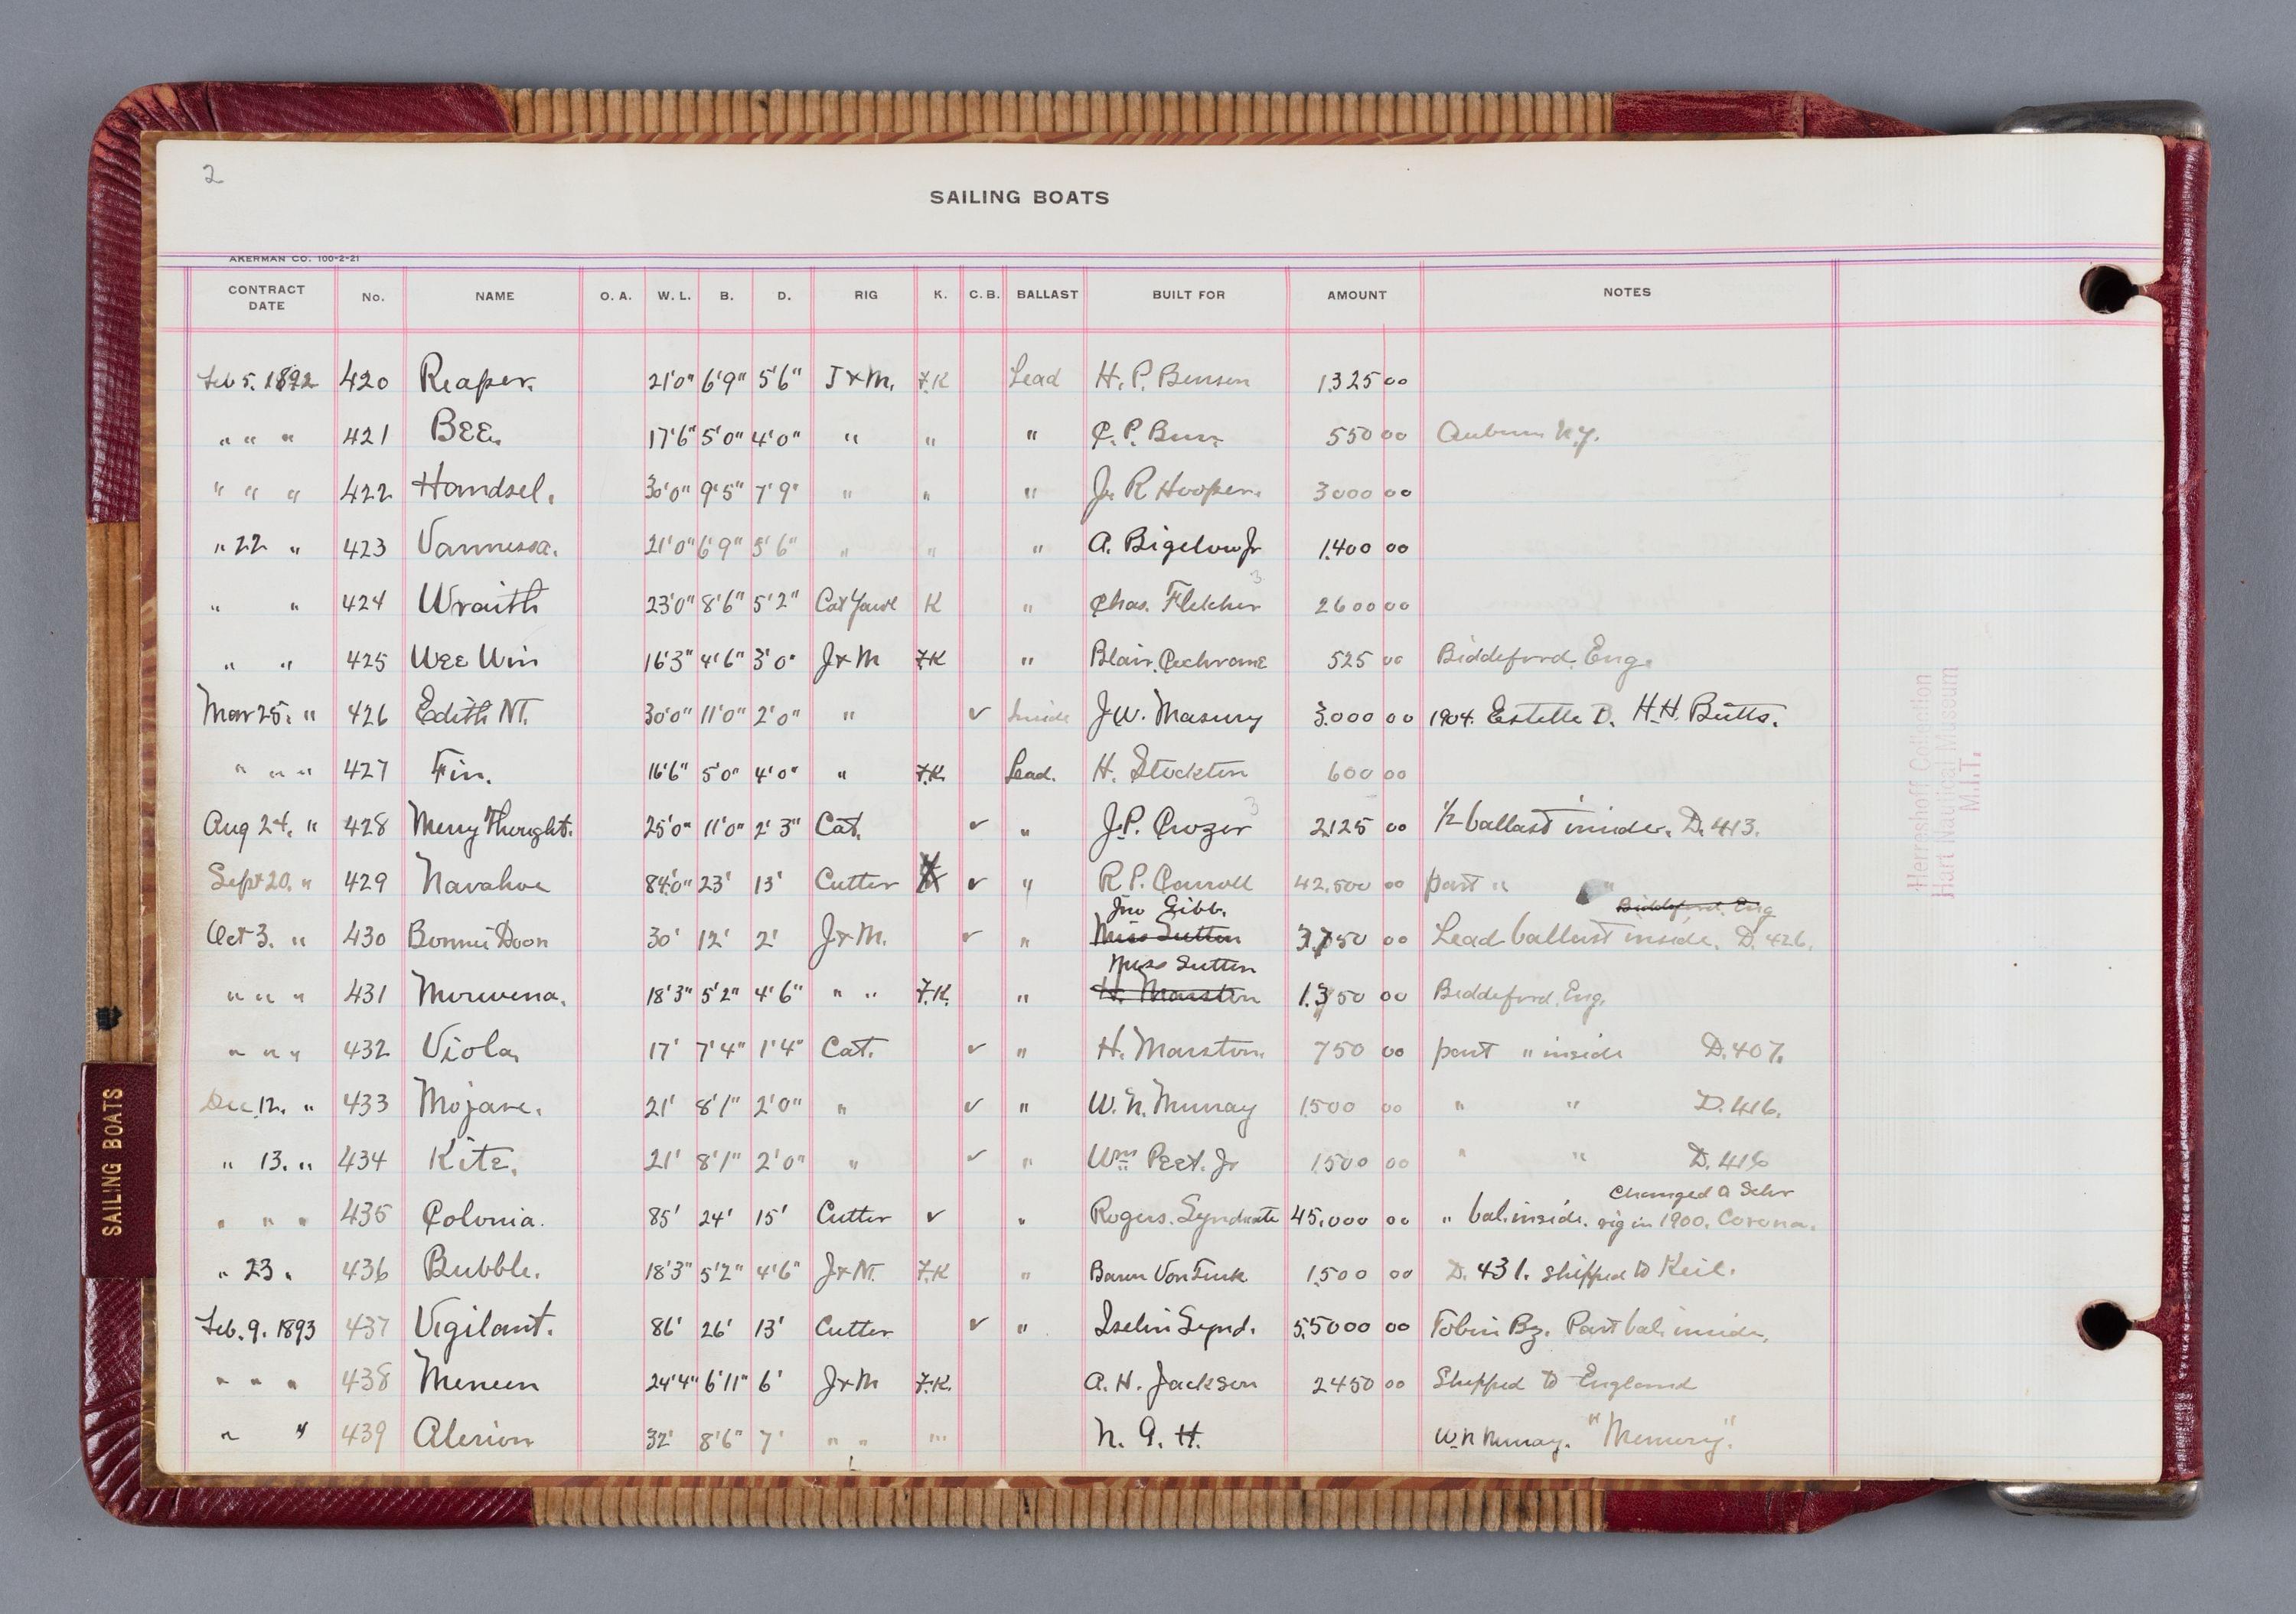 2
SAILING BOATS
AKERMAN CO. 100-2-21
CONTRACT DATE No. NAME O. A. W. L. B. D. RIG K. C. B. BALLAST BUILT FOR AMOUNT NOTES
Feb 5. 1892 420 Reaper. 21'0" 6'9" 5'6" J & M. F.K Lead H. P. Benson 1325 00
" " " 421 BEE. 17'6" 5'0" 4'0" " " " C. P. Burr 550 00 Auburn N.Y.
" " " 422 Handsel. 30'0" 9'5" 7'9" " " " J. R Hooper. 3000 00
" 22 " 423 Vannessa. 21'0" 6'9" 5'6" " " " A. Bigelow Jr 1400 00
" " 424 Wraith 23'0" 8'6" 5'2" Cat Yawl K " Chas. Fletcher 3 2600 00
" " 425 WEE Win 16'3" 4'6" 3'0" J & M F.K " Blair. Cochrane 525 00 Biddeford. Eng.
Mar 25. " 426 Edith M. 30'0" 11'0" 2'0" " ✓ Inside J.W. Masury 3.000 00 1904. Estelle D. H.H. Butts.
" " " 427 Fin. 16'6" 5'0" 4'0" " F.K. Lead. H. Stockton 600 00
Aug 24. " 428 Merry Thought. 25'0" 11'0" 2'3" Cat. ✓ " J.P. Crozer 3 2125 00 1/2 ballast inside. D. 413.
Sept 20. " 429 Navahoe 84'0" 23' 13' Cutter ✓ " R P. Carroll 42.500 00 part " "
Jno Gibb. Biddeford. Eng
Oct 3. " 430 Bonnie Doon 30' 12' 2' J & M. ✓ " Miss Sutton 3,750 00 Lead ballast inside. D. 426.
Miss Sutton
" " " 431 Morwena. 18'3" 5'2" 4'6" " " F.K. " H. Marston 1.350 00 Biddeford. Eng.
" " " 432 Viola, 17' 7'4" 1'4" Cat. ✓ " H. Marston. 750 00 part " inside D. 407.
Dec. 12. " 433 Mojave. 21' 8'1" 2'0" " ✓ " W. N. Murray 1500 00 " " D. 416.
" 13. " 434 Kite. 21' 8'1" 2'0" " ✓ " Wm Peet. Jr 1500 00 " " D. 416
Changed a Schr
" " " 435 Colonia. 85' 24' 15' Cutter ✓ " Rogers. Syndicate 45.000 00 " bal. inside. rig in 1900. Corona.
" 23 " 436 Bubble. 18'3" 5'2" 4'6" J & M. F.K " Baron Von Zink 1500 00 D. 431. shipped to Keil.
Feb. 9. 1893 437 Vigilant. 86' 26' 13' Cutter ✓ " Iselin Synd. 55000 00 Tobin Bz. Part bal. inside.
" " " 438 Meneen 24'4" 6'11" 6' J & M F.K. A. H. Jackson 2450 00 Shipped to England
" " 439 Alerion 32' 8'6" 7' " " " N. G. H. W. N Murray. "Memory."
Herreshoff Collection
Hart Nautical Museum
M.I.T.
SAILING BOATS